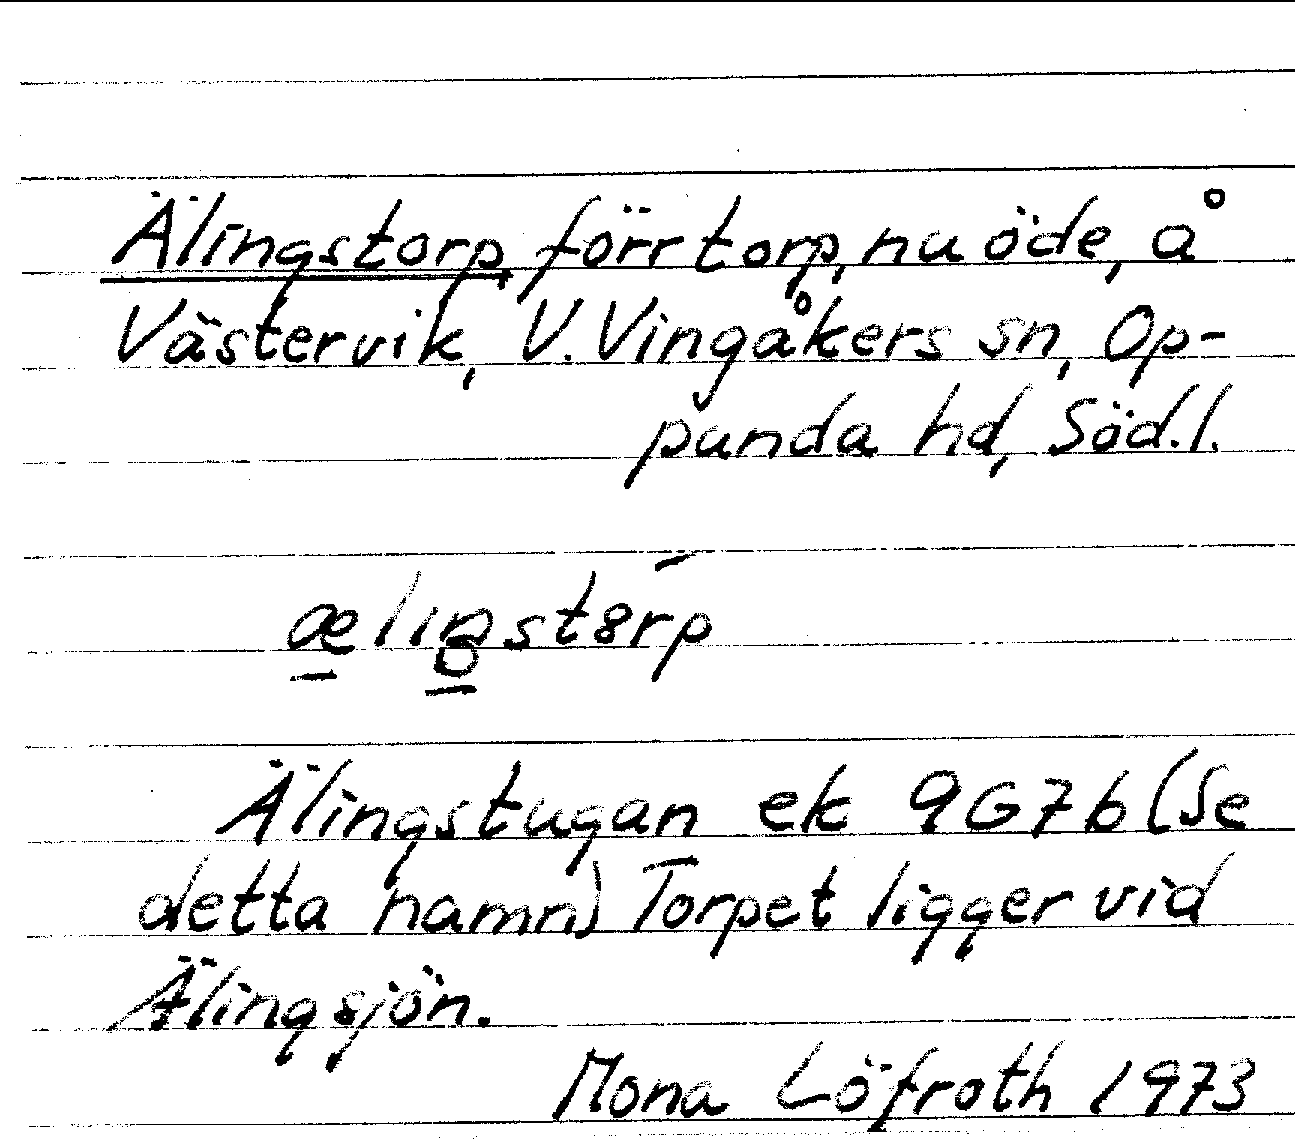 Älingstorp, förr torp, nu öde, å
Västervik, V. Vingåkers sn, Op-
punda hd, Söd.l.
ælıŋstɷrp
Älingstugan ek 9G7b (Se
detta namn) Torpet ligger vid
Älingsjön.
Mona Löfroth 1973